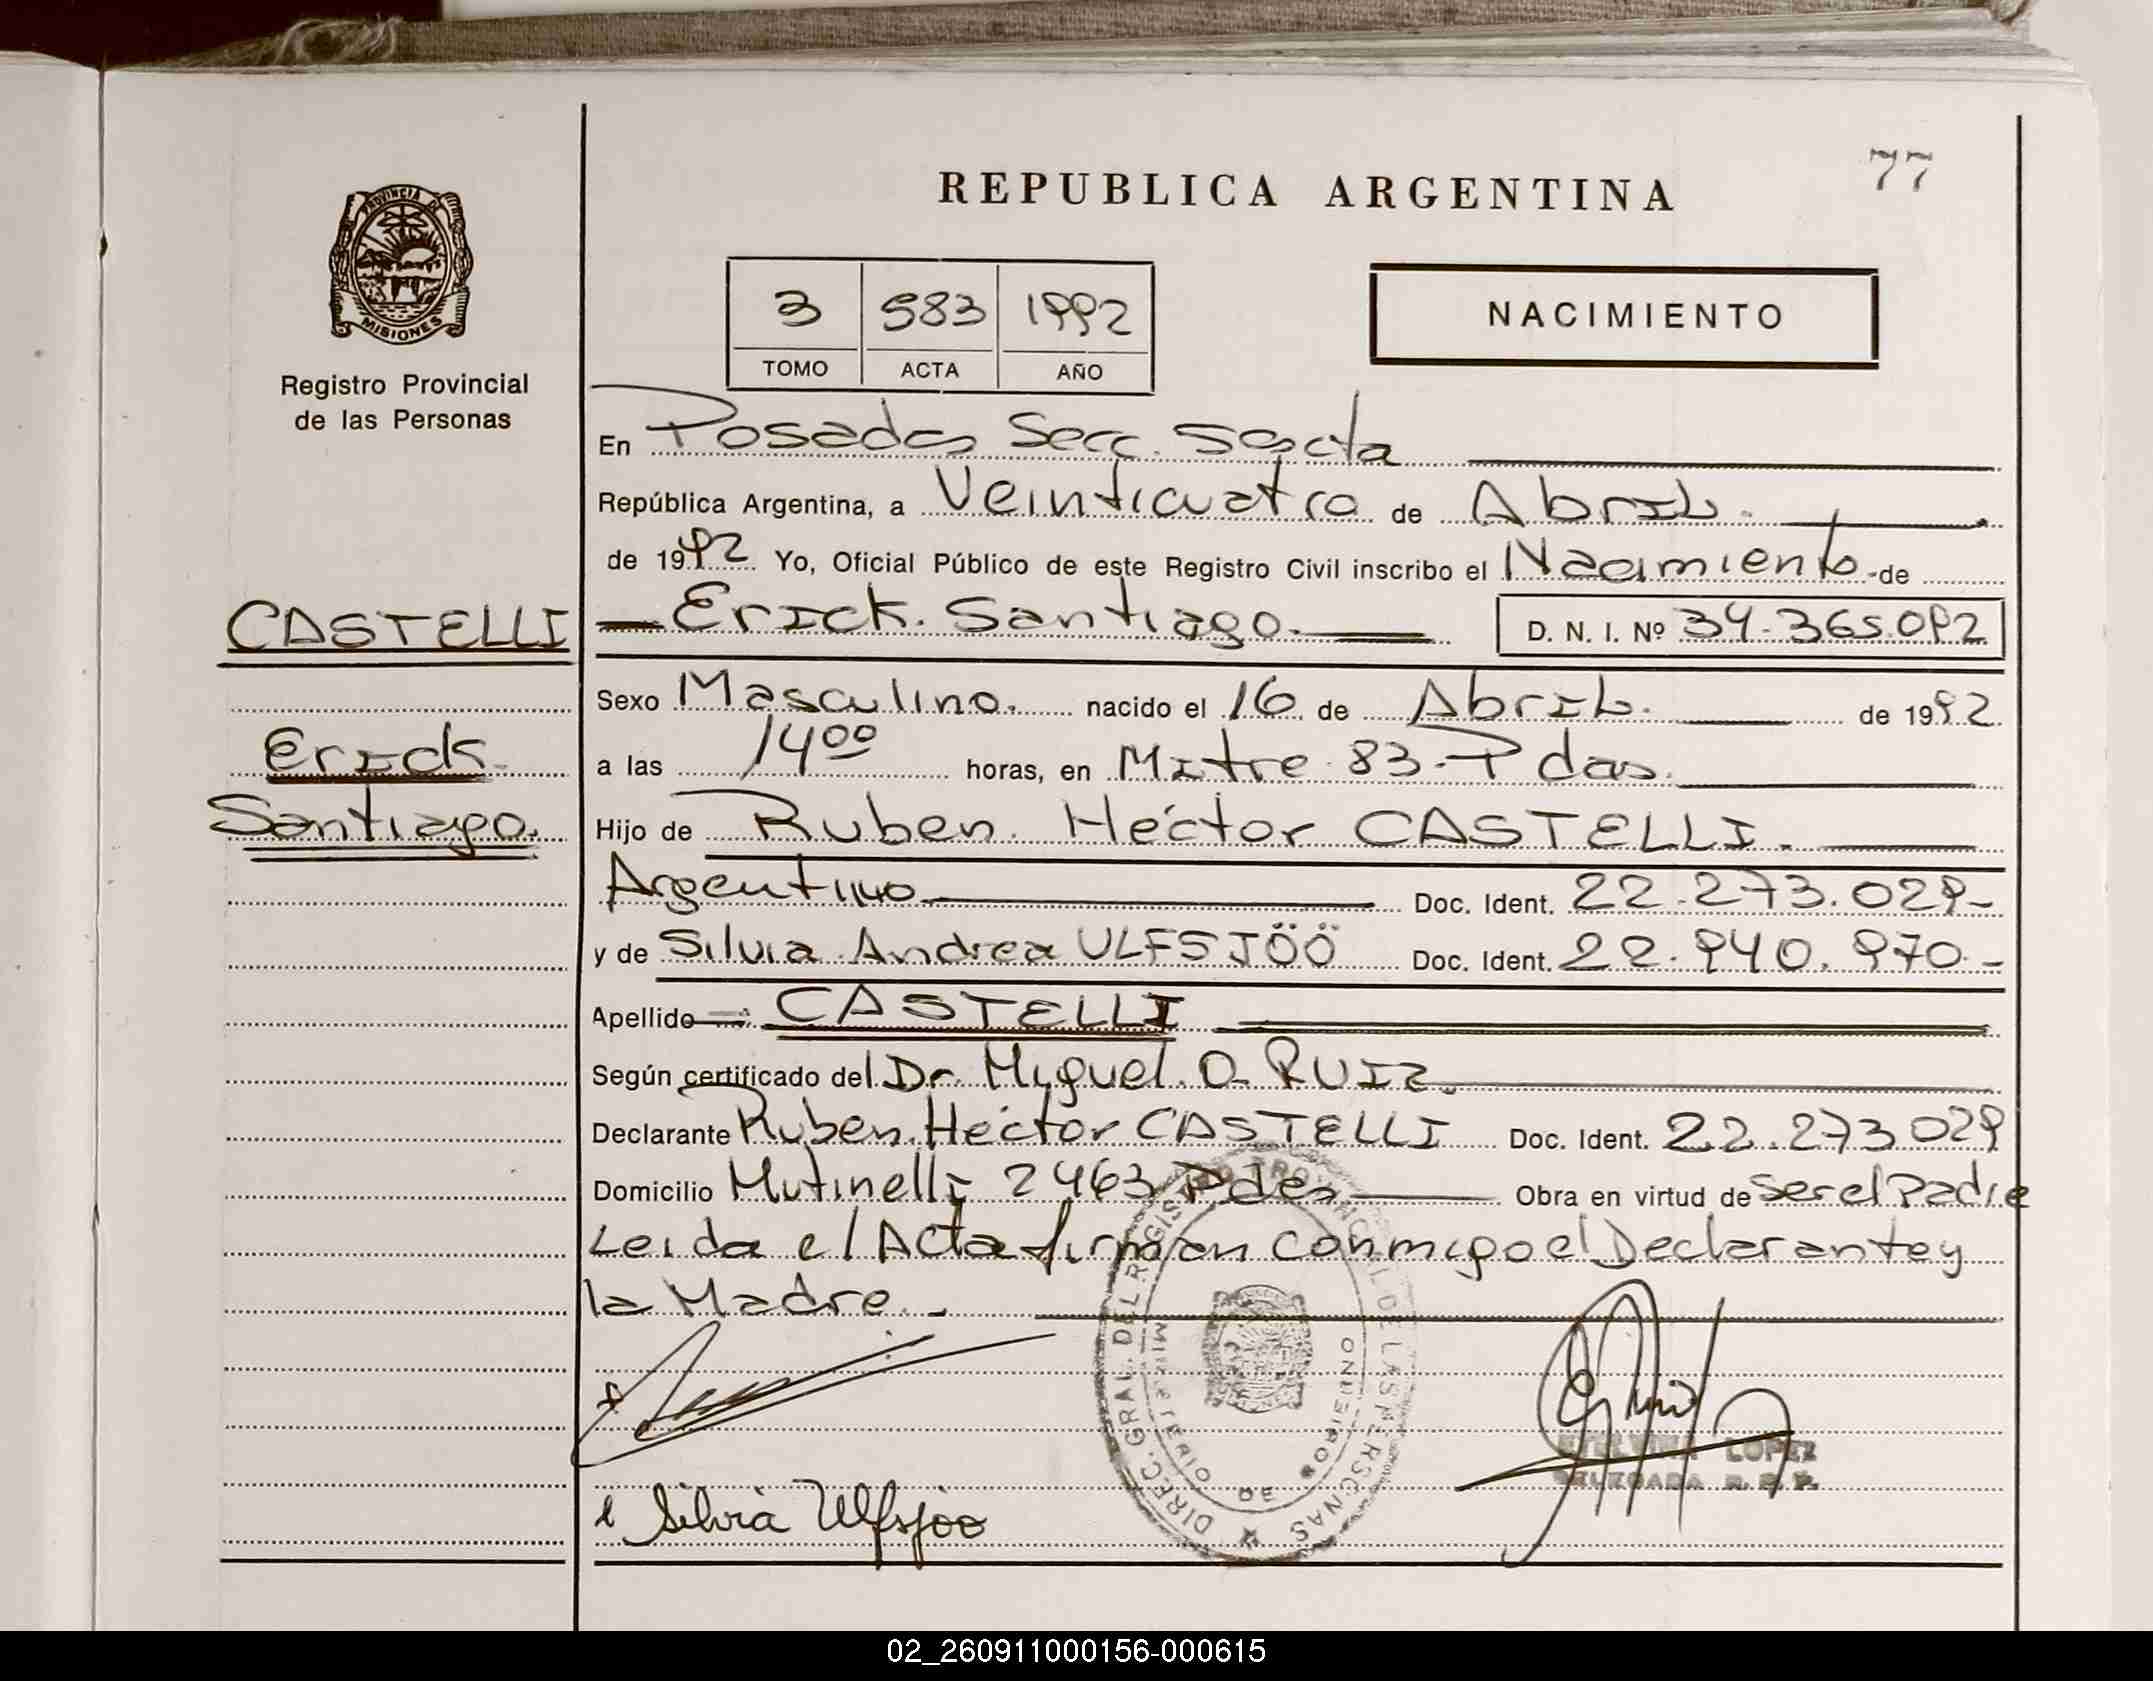 REPUBLICA ARGENTINA
77
PROVINCIA DE
MISIONES
Registro Provincial
de las Personas
3 583 1992
TOMO ACTA AÑO
NACIMIENTO
En Posadas Secc. Sexta
República Argentina, a Veinticuatro de Abril.
de 1992 Yo, Oficial Público de este Registro Civil inscribo el Nacimiento de
CASTELLI
Erick. Santiago. D. N. I. Nº 34.365.092
Sexo Masculino. nacido el 16 de Abril. de 1992
Erick
a las 14⁰⁰ horas, en Mitre 83. Pdas.
Santiago.
Hijo de Ruben. Héctor CASTELLI.
Argentino Doc. Ident. 22.273.029-
y de Silvia Andrea ULFSJÖÖ Doc. Ident. 22.940.970.-
Apellido CASTELLI
Según certificado del Dr. Miguel. O. RUIZ.
Declarante Ruben Héctor CASTELLI Doc. Ident. 22.273.029
Domicilio Mutinelli 2463 Pdas Obra en virtud de ser el Padre
Leida el Acta firman conmigo el Declarante y
la Madre.-
DIREC. GRAL. DEL REGISTRO PROVINCIAL DE LAS PERSONAS
MINISTERIO DE GOBIERNO
Silvia Ulfsjoo
LOPEZ
DELEGADA R. P. P.
02_260911000156-000615